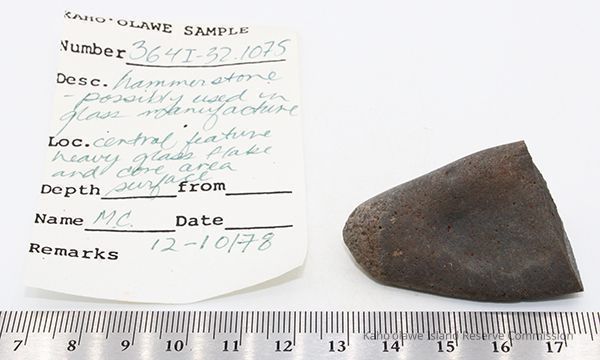 KAHO'OLAWE SAMPLE
Number 3641-32.1075
Desc. hammerstone
- possibly used in
glass manufacture
Loc. central feature
heavy glass flake
and core area
surface
Depth from
Name M.C. Date
Remarks 12-10/78
Kaho'olawe Island Reserve Commission
7 8 9 10 11 12 13 14 15 16 17